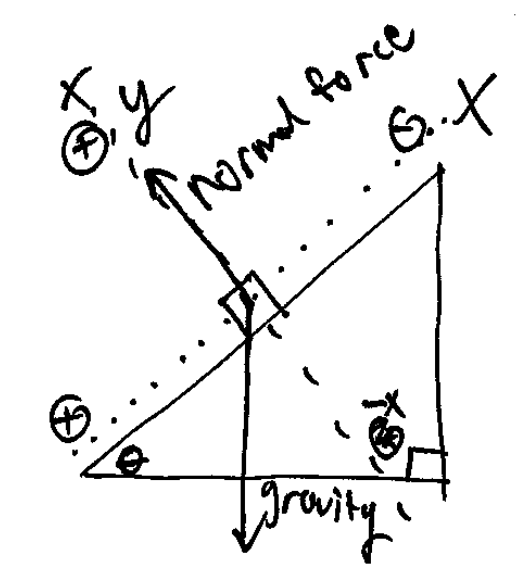 x, y
⊕
normal force
⊖
X
⊕
θ
-x
gravity